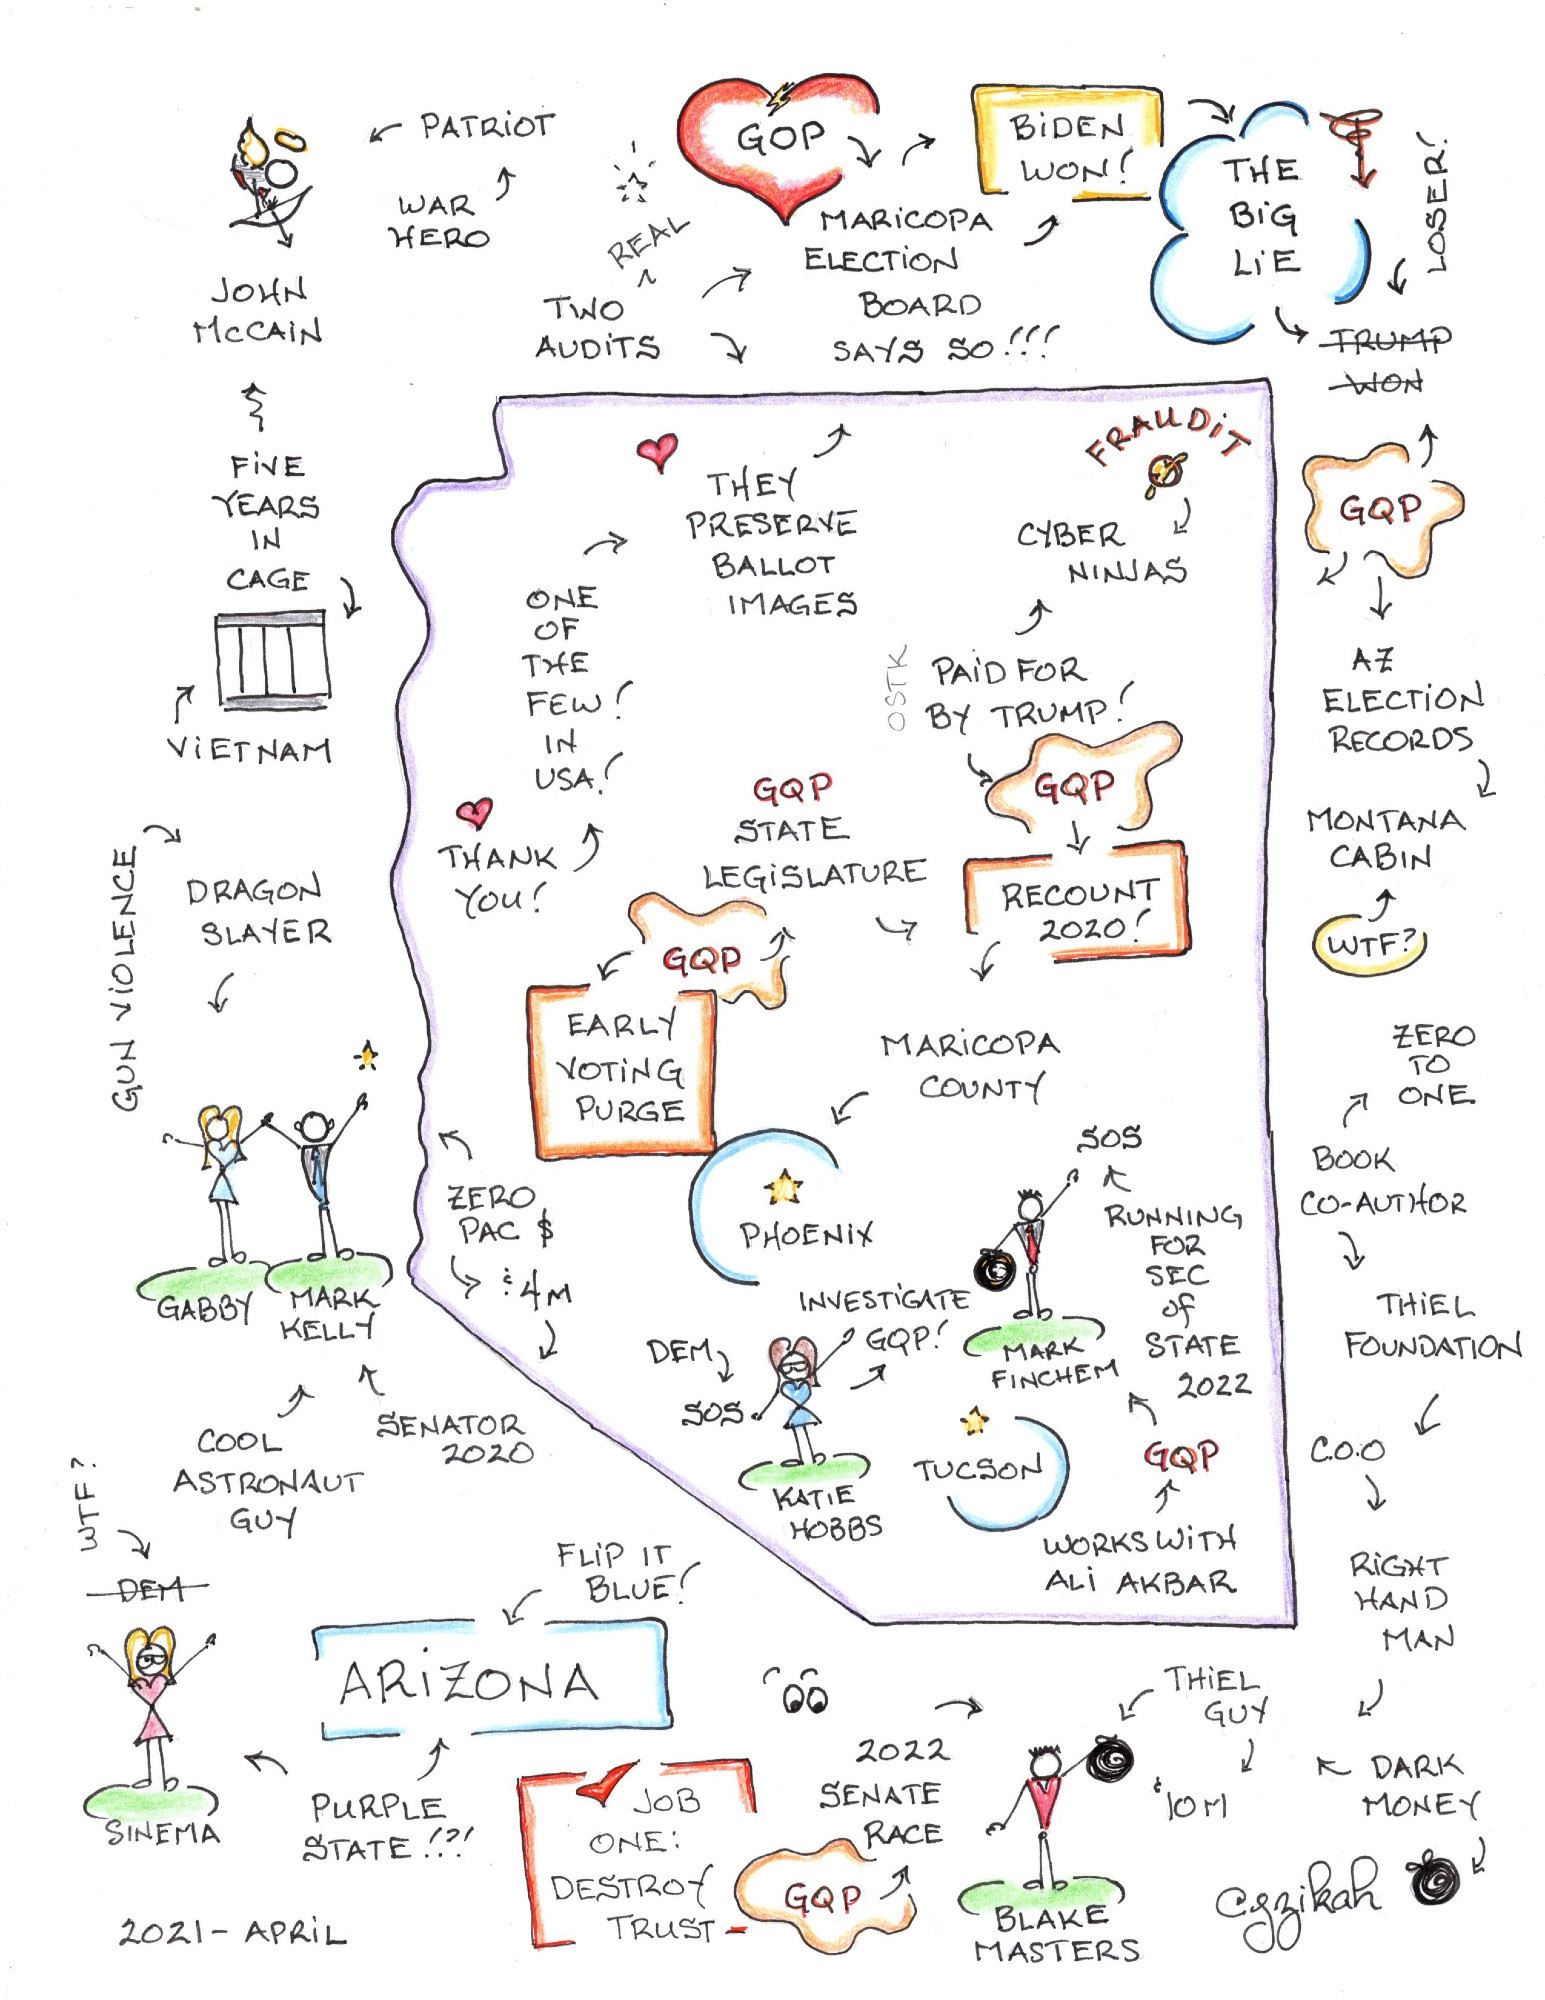 PATRIOT
WAR
HERO
JOHN
McCAIN
FIVE
YEARS
IN
CAGE
VIETNAM
REAL
TWO
AUDITS
GOP
MARICOPA
ELECTION
BOARD
SAYS SO!!!
BIDEN
WON!
THE
BIG
LIE
LOSER!
TRUMP
WON
GQP
AZ
ELECTION
RECORDS
MONTANA
CABIN
WTF?
THEY
PRESERVE
BALLOT
IMAGES
ONE
OF
THE
FEW!
IN
USA!
THANK
YOU!
FRAUDIT
CYBER
NINJAS
OSTK
PAID FOR
BY TRUMP!
GQP
RECOUNT
2020!
GQP
STATE
LEGISLATURE
GQP
EARLY
VOTING
PURGE
MARICOPA
COUNTY
PHOENIX
GUN VIOLENCE
DRAGON
SLAYER
GABBY
MARK
KELLY
ZERO
PAC $
$4M
COOL
ASTRONAUT
GUY
SENATOR
2020
DEM
SOS
INVESTIGATE
GQP!
KATIE
HOBBS
SOS
RUNNING
FOR
SEC
of
STATE
2022
MARK
FINCHEM
TUCSON
GQP
WORKS WITH
ALI AKBAR
ZERO
TO
ONE
BOOK
CO-AUTHOR
THIEL
FOUNDATION
C.O.O
RIGHT
HAND
MAN
WTF?
DEM
SINEMA
FLIP IT
BLUE!
ARIZONA
PURPLE
STATE!?!
JOB
ONE:
DESTROY
TRUST
GQP
2022
SENATE
RACE
THIEL
GUY
$10M
BLAKE
MASTERS
DARK
MONEY
2021- APRIL
cyzikah